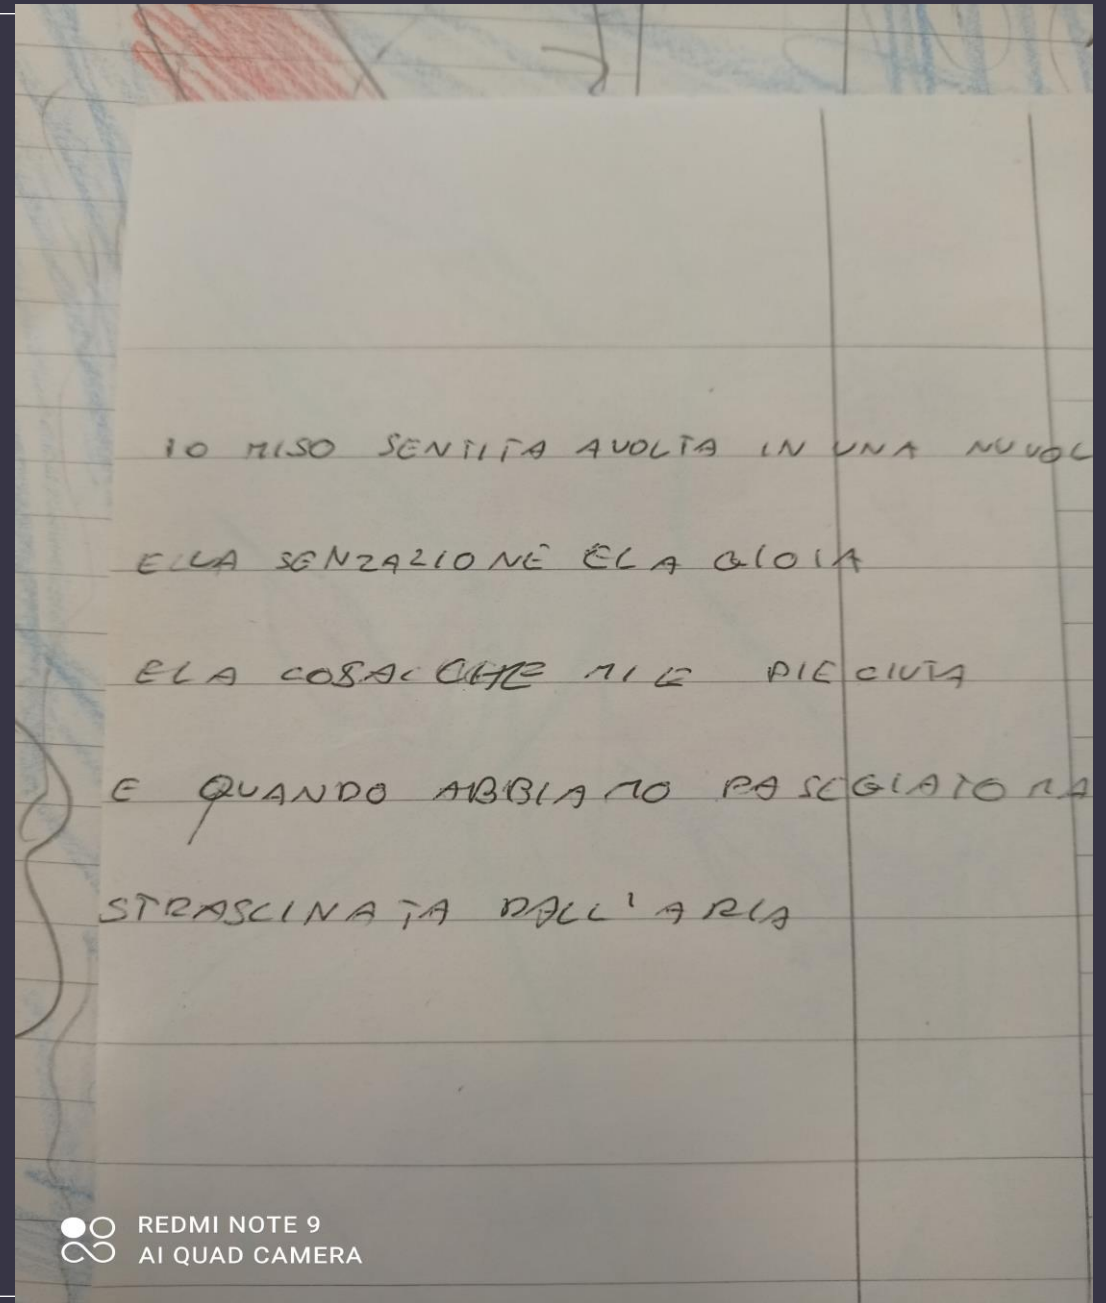 IO MISO SENTITA AVOLTA IN UNA NUVOL
ELLA SENZAZIONE ELA GIOIA
ELA COSA CHE MI E PIECIUTA
E QUANDO ABBIAMO PASEGIATO MA
STRASCINATA DALL'ARIA
REDMI NOTE 9
AI QUAD CAMERA